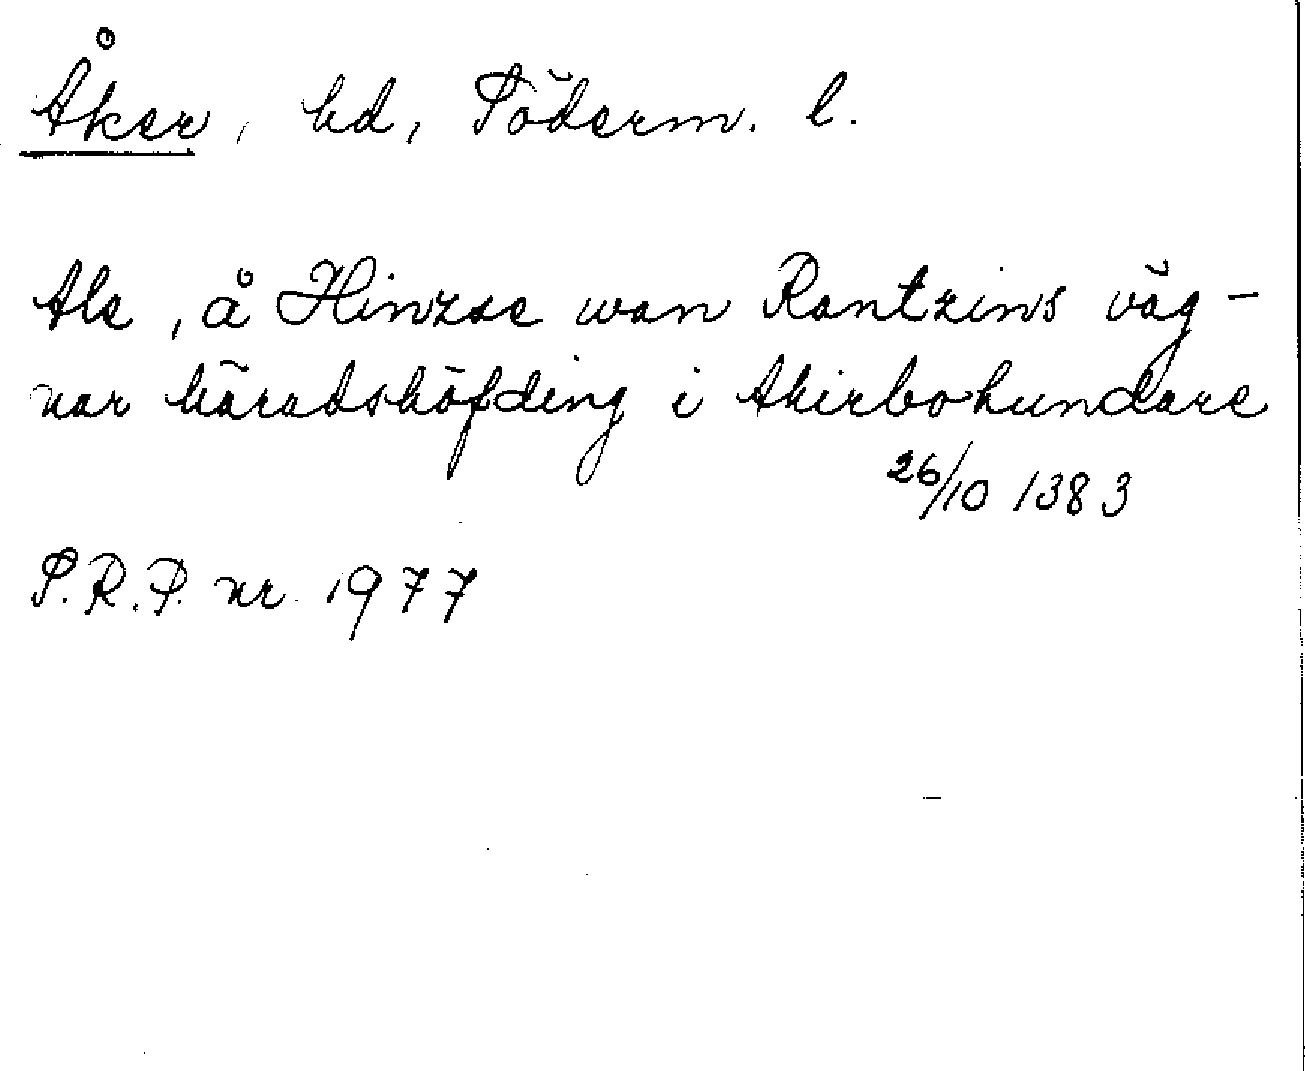 Åker, hd, Söderm. l.
Ale, å Hinzae wan Rantzins väg-
nar häradshöfding i Akirbohundare
26/10 1383
S.R.P. nr 1977